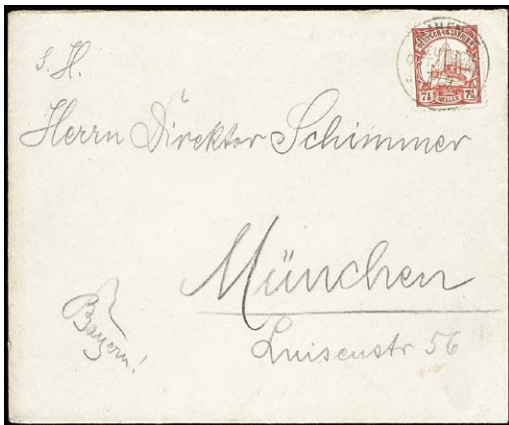 S. H.
Herrn Direktor Schimmer
München
Luisenstr 56
Bayern!
DEUTSCH-OSTAFRIKA
7½ HELLER 7½